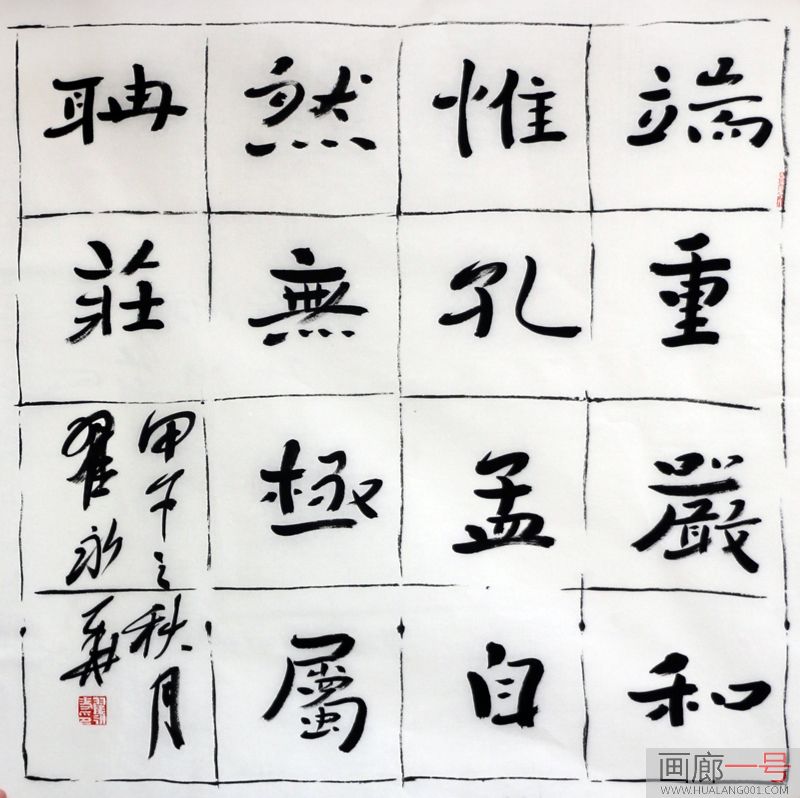 端重嚴和
惟孔孟自
然無極屬
聃莊
甲午之秋月
翟永華
画廊一号
WWW.HUALANG001.COM